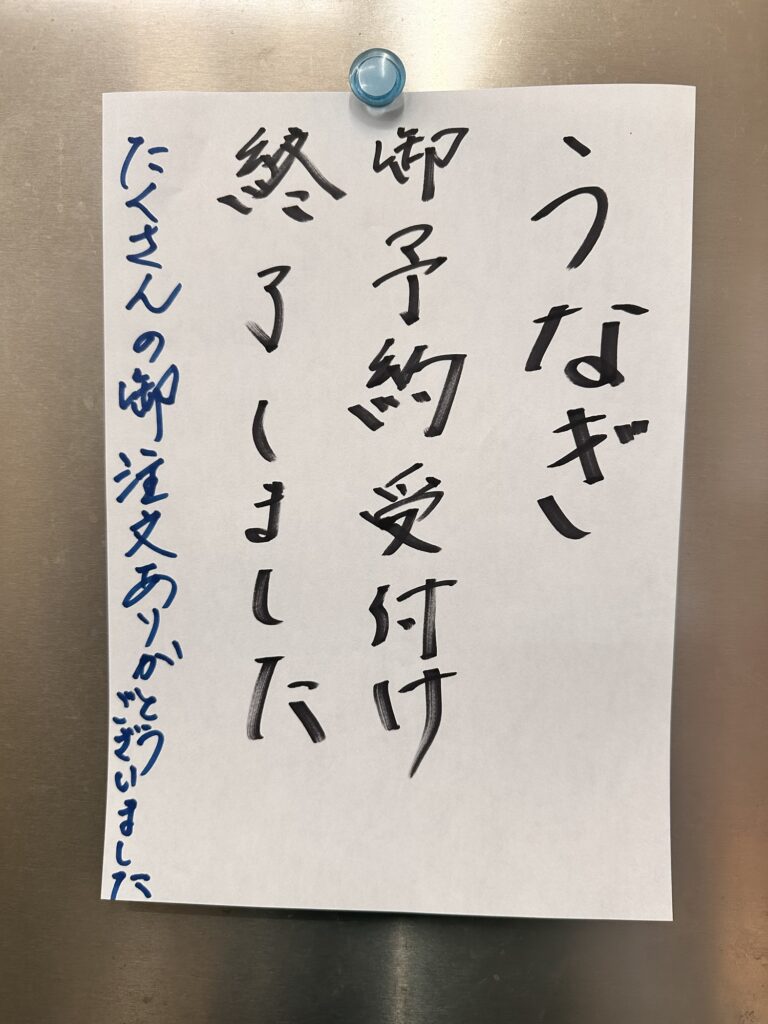 うなぎ
御予約受付け
終了しました
たくさんの御注文ありがとうございました